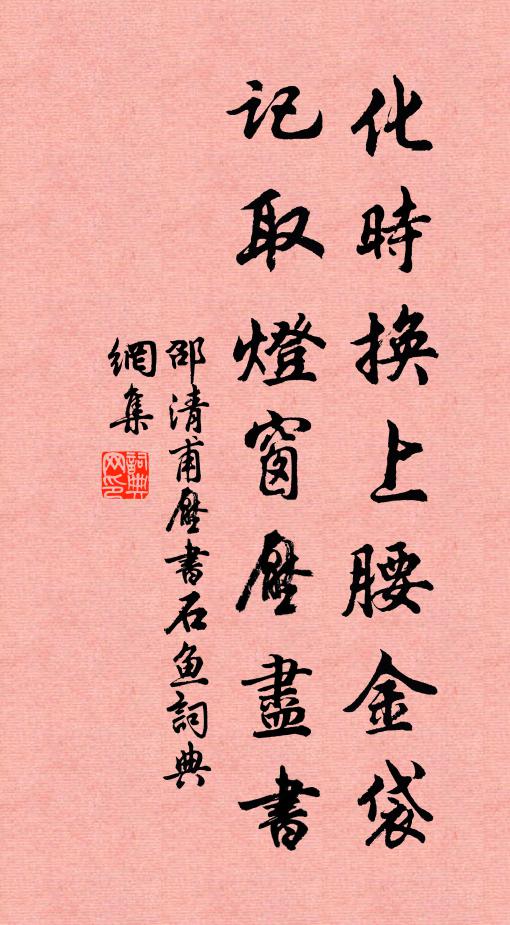 化時換上腰金袋
記取燈窗壓盡書
邵清甫壓書石魚詞典
網集
詞典網印